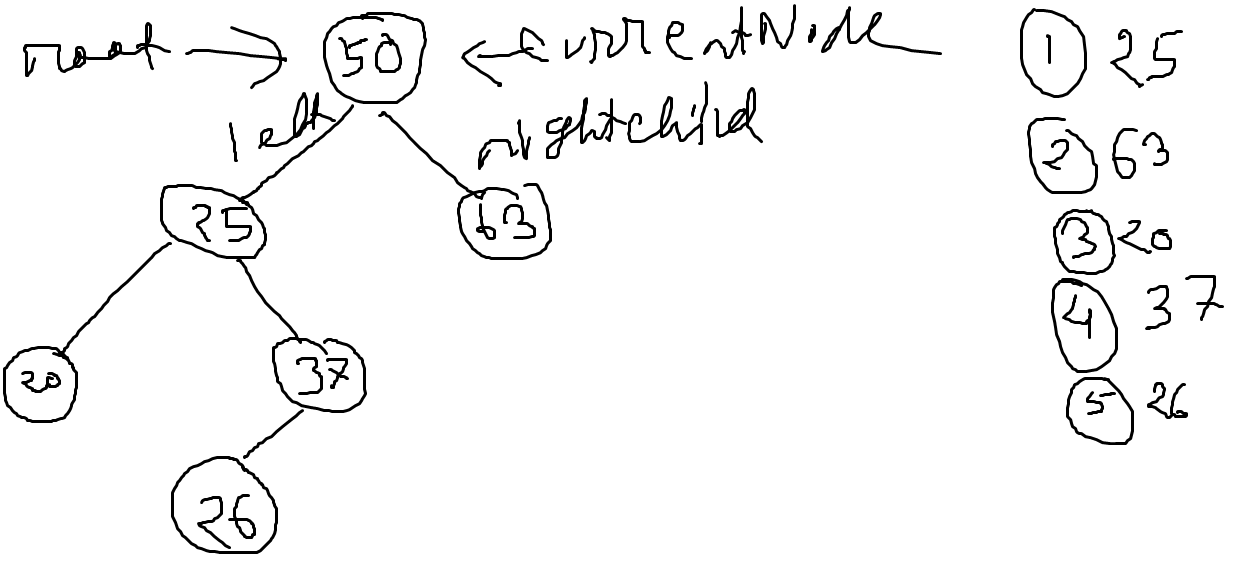 root 50 currentNode
left rightchild
25 63
20 37
26
1 25
2 63
3 20
4 37
5 26